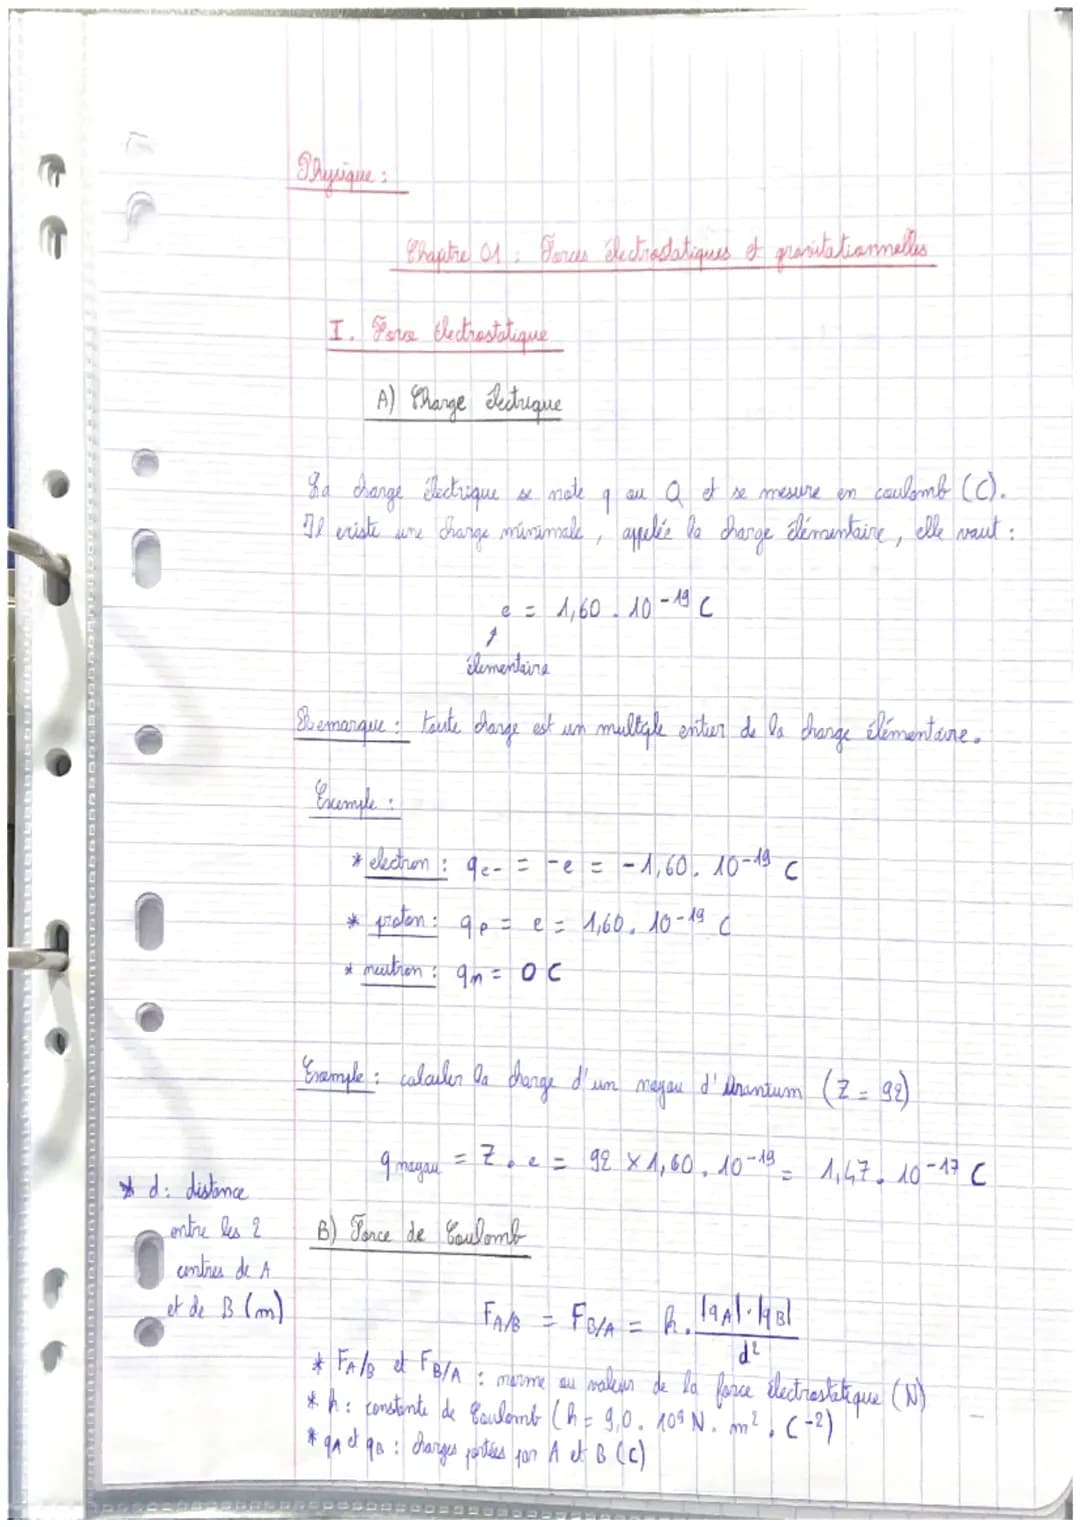 Physique :
Chapitre 01 : Forces électrostatiques et gravitationnelles
I. Force électrostatique
A) Charge électrique
La charge électrique se note q ou Q et se mesure en coulomb (C).
Il existe une charge minimale, appelée la charge élémentaire, elle vaut :
e = 1,60 . 10⁻¹⁹ C
↑
élementaire
Remarque : toute charge est un multiple entier de la charge élémentaire.
Exemple :
* electron : qe- = -e = -1,60. 10⁻¹⁹ C
* proton : qp = e = 1,60. 10⁻¹⁹ C
* neutron : qn = 0 C
Exemple : calculer la charge d'un noyau d'Uranium (Z = 92)
q noyau = Z . e = 92 × 1,60 . 10⁻¹⁹ = 1,47. 10⁻¹⁷ C
* d : distance
entre les 2
centres de A
et de B (m)
B) Force de Coulomb
FA/B = FB/A = k . |qA| . |qB| / d²
* FA/B et FB/A : norme ou valeur de la force électrostatique (N)
* k : constante de Coulomb (k = 9,0 . 10⁹ N . m² . C⁻²)
* qA et qB : charges portées par A et B (C)